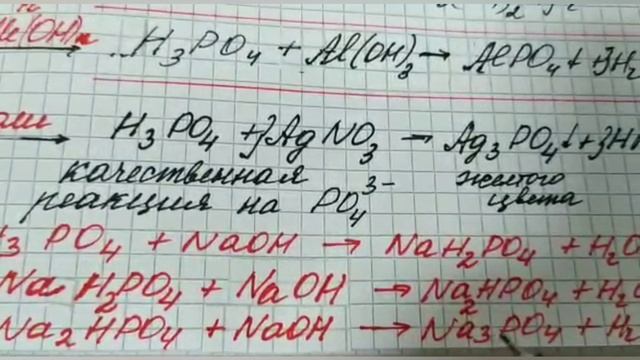 Me(OH)n
H₃PO₄ + Al(OH)₃ → AlPO₄ + 3H₂
H₃PO₄ + 3AgNO₃ → Ag₃PO₄↓ + 3H
качественная желтого
реакция на PO₄³⁻ цвета
3 PO₄ + NaOH → NaH₂PO₄ + H₂O
Na H₂PO₄ + NaOH → Na₂HPO₄ + H₂
Na₂HPO₄ + NaOH → Na₃PO₄ + H₂